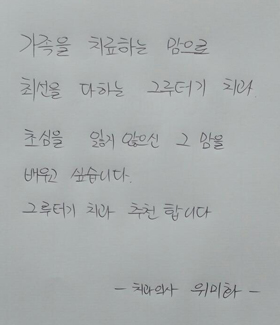 가족을 치료하는 맘으로
최선을 다하는 그루터기 치과
초심을 잃지 않으신 그 맘을
배우고 싶습니다.
그루터기 치과 추천 합니다
- 치과의사 위미하 -